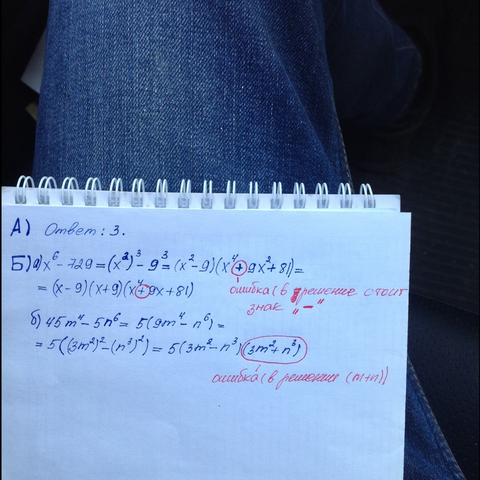 А) Ответ: 3.
Б) а) x⁶ - 729 = (x²)³ - 9³ = (x² - 9)(x⁴ + 9x² + 81) =
= (x - 9)(x + 9)(x⁴ + 9x + 81)
ошибка (в решение стоит
знак „-“
б) 45m⁴ - 5n⁶ = 5(9m⁴ - n⁶) =
= 5((3m²)² - (n³)²) = 5(3m² - n³)(3m² + n³)
ошибка (в решении (m+n))